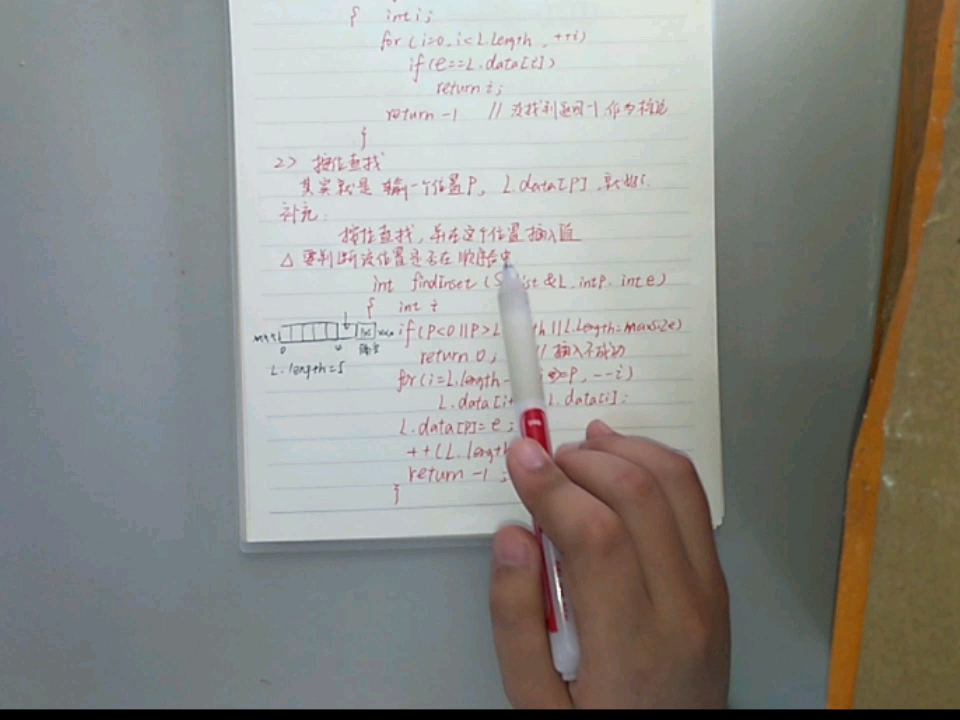 { int i;
for (i=0, i<L.length, ++i)
if (e==L.data[i])
return i;
return -1 // 没找到返回-1作为标记
}
2> 按位查找
其实就是 输一个位置P, L.data[P]
补充:
按位查找,并在这个位置插入值
△ 要判断该位置是否在顺序表中
int findInset (S ist &L, int P, int e)
{ int i
if (P<0 || P>L th || L.length=maxSize)
return 0; // 插入不成功
for (i=L.length- i>=P, --i)
L.data[i+ L.data[i];
L.data[P]= e;
++(L.length
return -1;
}
0 4
L.length=5